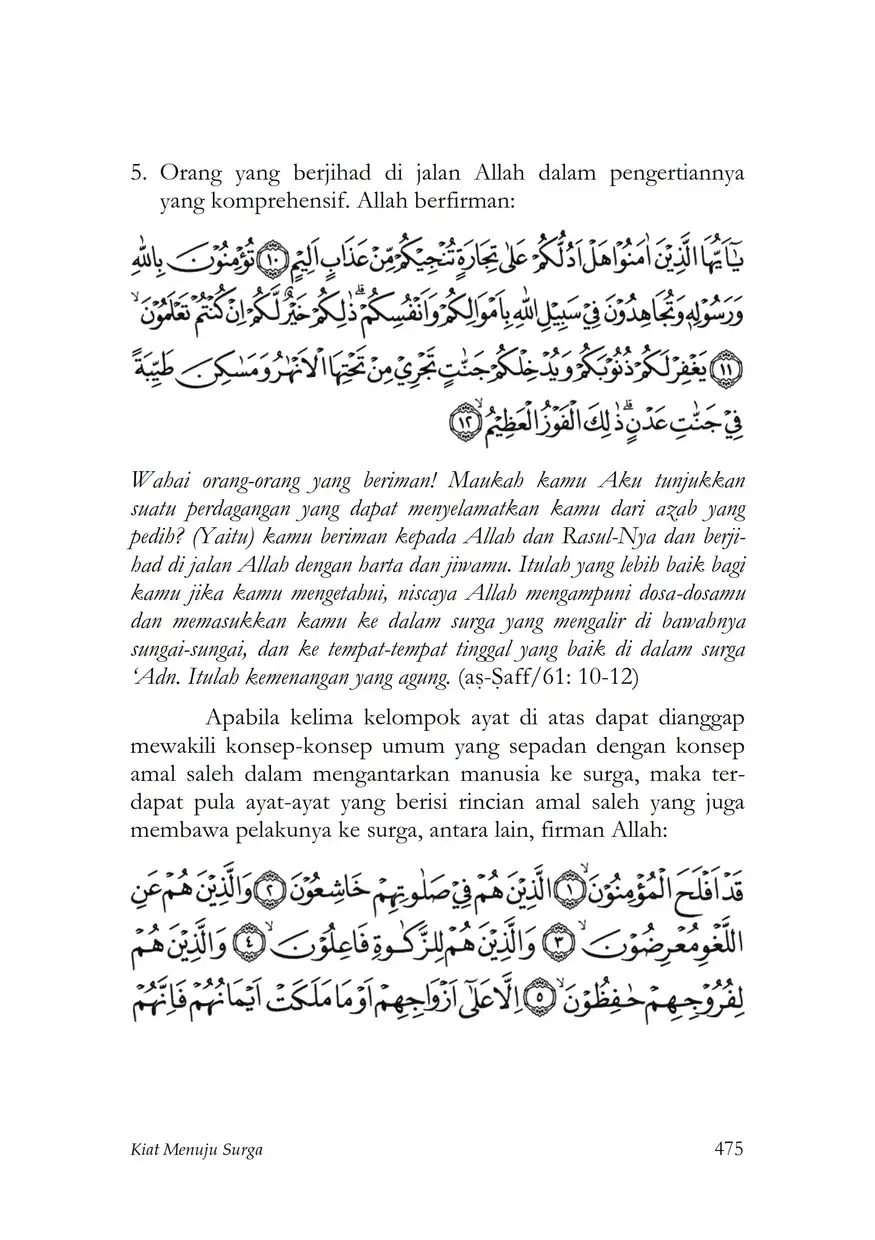 5. Orang yang berjihad di jalan Allah dalam pengertiannya
yang komprehensif. Allah berfirman:
يٰٓاَيُّهَا الَّذِيْنَ اٰمَنُوْا هَلْ اَدُلُّكُمْ عَلٰى تِجَارَةٍ تُنْجِيْكُمْ مِّنْ عَذَابٍ اَلِيْمٍ ﴿١٠﴾ تُؤْمِنُوْنَ بِاللّٰهِ
وَرَسُوْلِهٖ وَتُجَاهِدُوْنَ فِيْ سَبِيْلِ اللّٰهِ بِاَمْوَالِكُمْ وَاَنْفُسِكُمْۗ ذٰلِكُمْ خَيْرٌ لَّكُمْ اِنْ كُنْتُمْ تَعْلَمُوْنَۙ
﴿١١﴾ يَغْفِرْ لَكُمْ ذُنُوْبَكُمْ وَيُدْخِلْكُمْ جَنّٰتٍ تَجْرِيْ مِنْ تَحْتِهَا الْاَنْهٰرُ وَمَسٰكِنَ طَيِّبَةً
فِيْ جَنّٰتِ عَدْنٍۗ ذٰلِكَ الْفَوْزُ الْعَظِيْمُۙ ﴿١٢﴾
Wahai orang-orang yang beriman! Maukah kamu Aku tunjukkan
suatu perdagangan yang dapat menyelamatkan kamu dari azab yang
pedih? (Yaitu) kamu beriman kepada Allah dan Rasul-Nya dan berji-
had di jalan Allah dengan harta dan jiwamu. Itulah yang lebih baik bagi
kamu jika kamu mengetahui, niscaya Allah mengampuni dosa-dosamu
dan memasukkan kamu ke dalam surga yang mengalir di bawahnya
sungai-sungai, dan ke tempat-tempat tinggal yang baik di dalam surga
‘Adn. Itulah kemenangan yang agung. (aṣ-Ṣaff/61: 10-12)
Apabila kelima kelompok ayat di atas dapat dianggap
mewakili konsep-konsep umum yang sepadan dengan konsep
amal saleh dalam mengantarkan manusia ke surga, maka ter-
dapat pula ayat-ayat yang berisi rincian amal saleh yang juga
membawa pelakunya ke surga, antara lain, firman Allah:
قَدْ اَفْلَحَ الْمُؤْمِنُوْنَۙ ﴿١﴾ الَّذِيْنَ هُمْ فِيْ صَلٰوتِهِمْ خَاشِعُوْنَ ﴿٢﴾ وَالَّذِيْنَ هُمْ عَنِ
اللَّغْوِ مُعْرِضُوْنَۙ ﴿٣﴾ وَالَّذِيْنَ هُمْ لِلزَّكٰوةِ فَاعِلُوْنَۙ ﴿٤﴾ وَالَّذِيْنَ هُمْ
لِفُرُوْجِهِمْ حٰفِظُوْنَۙ ﴿٥﴾ اِلَّا عَلٰٓى اَزْوَاجِهِمْ اَوْ مَا مَلَكَتْ اَيْمَانُهُمْ فَاِنَّهُمْ
Kiat Menuju Surga 475